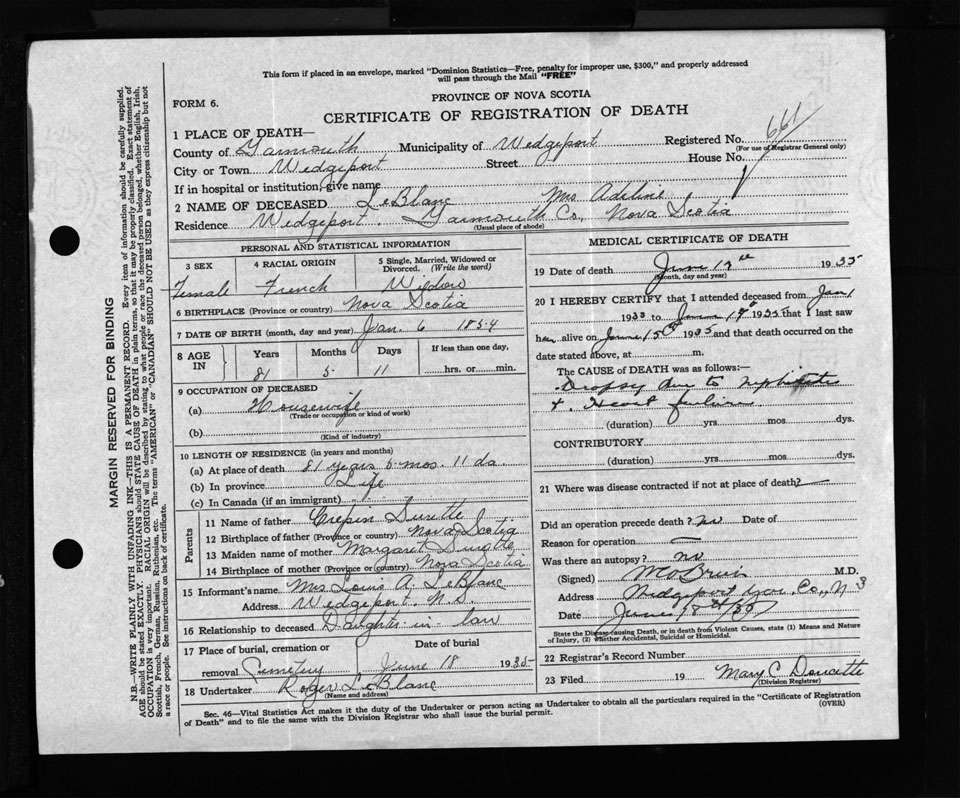 This form if placed in an envelope, marked "Dominion Statistics—Free, penalty for improper use, $300," and properly addressed
will pass through the Mail "FREE"
PROVINCE OF NOVA SCOTIA
FORM 6.
CERTIFICATE OF REGISTRATION OF DEATH
1 PLACE OF DEATH—
County of Yarmouth Municipality of Wedgeport Registered No. 661
(For use of Registrar General only)
City or Town Wedgeport Street House No.
If in hospital or institution, give name
2 NAME OF DECEASED LeBlanc Mrs Adeline
Residence Wedgeport. Yarmouth Co., Nova Scotia
(Usual place of abode)
PERSONAL AND STATISTICAL INFORMATION
3 SEX 4 RACIAL ORIGIN 5 Single, Married, Widowed or Divorced. (Write the word)
Female French Widow
6 BIRTHPLACE (Province or country) Nova Scotia
7 DATE OF BIRTH (month, day and year) Jan. 6 1854
8 AGE IN Years Months Days If less than one day,
81 5 11 hrs. or min.
9 OCCUPATION OF DECEASED
(a) Housewife
(Trade or occupation or kind of work)
(b)
(Kind of industry)
10 LENGTH OF RESIDENCE (in years and months)
(a) At place of death 81 years 5 mos. 11 da.
(b) In province Life
(c) In Canada (if an immigrant)
Parents
11 Name of father Crepin Surette
12 Birthplace of father (Province or country) Nova Scotia
13 Maiden name of mother Margaret
14 Birthplace of mother (Province or country) Nova Scotia
15 Informant's name Mrs Louis A. LeBlanc
Address Wedgeport, N.S.
16 Relationship to deceased Daughter-in-law
17 Place of burial, cremation or removal Cemetery Date of burial June 18 1935
18 Undertaker Roger LeBlanc
(Name and address)
MEDICAL CERTIFICATE OF DEATH
19 Date of death June 17th 1935
(Month, day and year)
20 I HEREBY CERTIFY that I attended deceased from Jan 1
1935 to June 17th 1935 that I last saw
her alive on June 15th 1935 and that death occurred on the
date stated above, at m.
The CAUSE of DEATH was as follows:—
Dropsy due to nephritis
+ Heart failure
(duration) yrs mos dys.
CONTRIBUTORY
(duration) yrs mos dys.
21 Where was disease contracted if not at place of death? —
Did an operation precede death? no Date of
Reason for operation —
Was there an autopsy? no
(Signed) M.D.
Address Wedgeport Yar. Co., N S
Date June 18th/35
State the Disease causing Death, or in death from Violent Causes, state (1) Means and Nature
of Injury, (2) whether Accidental, Suicidal or Homicidal.
22 Registrar's Record Number
23 Filed 19 Mary C Doucette
(Division Registrar)
Sec. 46—Vital Statistics Act makes it the duty of the Undertaker or person acting as Undertaker to obtain all the particulars required in the "Certificate of Registration
of Death" and to file the same with the Division Registrar who shall issue the burial permit.
(OVER)
MARGIN RESERVED FOR BINDING
N.B.—WRITE PLAINLY WITH UNFADING INK—THIS IS A PERMANENT RECORD. Every item of information should be carefully supplied.
AGE should be stated EXACTLY. PHYSICIANS should STATE CAUSE OF DEATH in plain terms, so that it may be properly classified. Exact statement of
OCCUPATION is very important. RACIAL ORIGIN will be described by stating to what people or race the deceased person belonged, whether English, Irish,
Scottish, French, German, Russian, Ruthenian, etc. The terms "AMERICAN" or "CANADIAN" SHOULD NOT BE USED as they express citizenship but not
a race or people. See instructions on back of certificate.